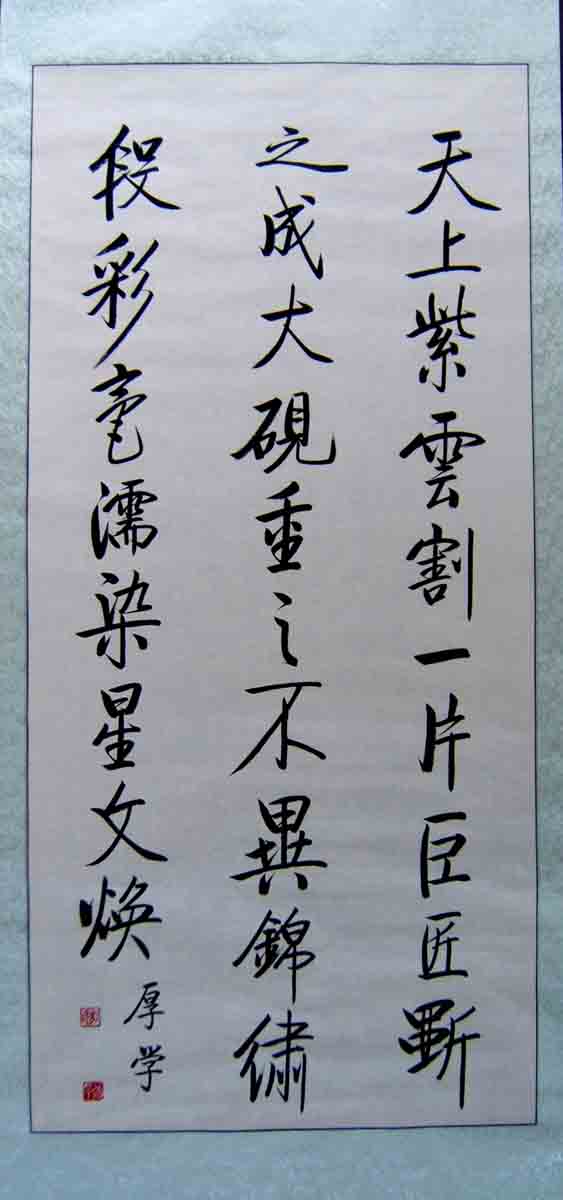 天上紫雲割一片巨匠斲
之成大硯重之不異錦繡
段彩毫濡染星文煥
厚学